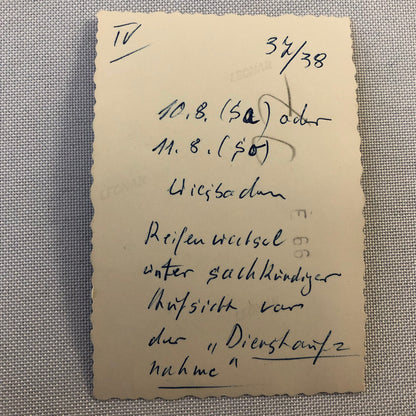 IV
37/38
LEONAR
10.8. (Sa) oder
11.8. (So)
LEONAR
Wiesbaden
F 66
Reifenwechsel
unter sachkundiger
Aufsicht vor
der „Dienstauf=
nahme"